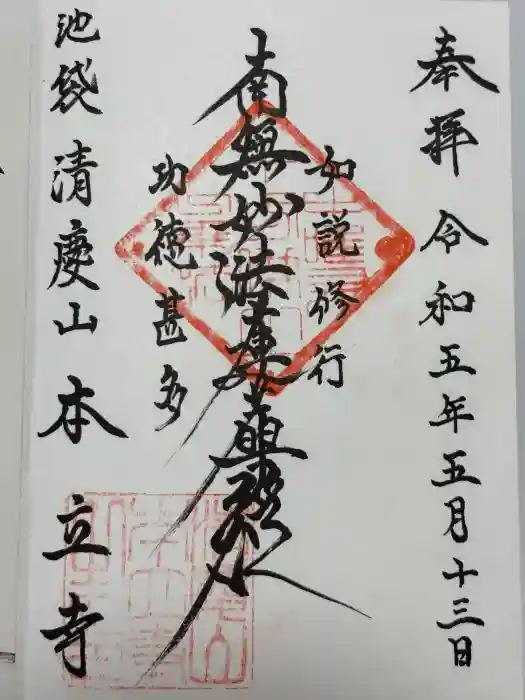 奉拝 令和五年五月十三日
如説修行
南無妙法蓮華経
功徳甚多
池袋 清慶山 本立寺